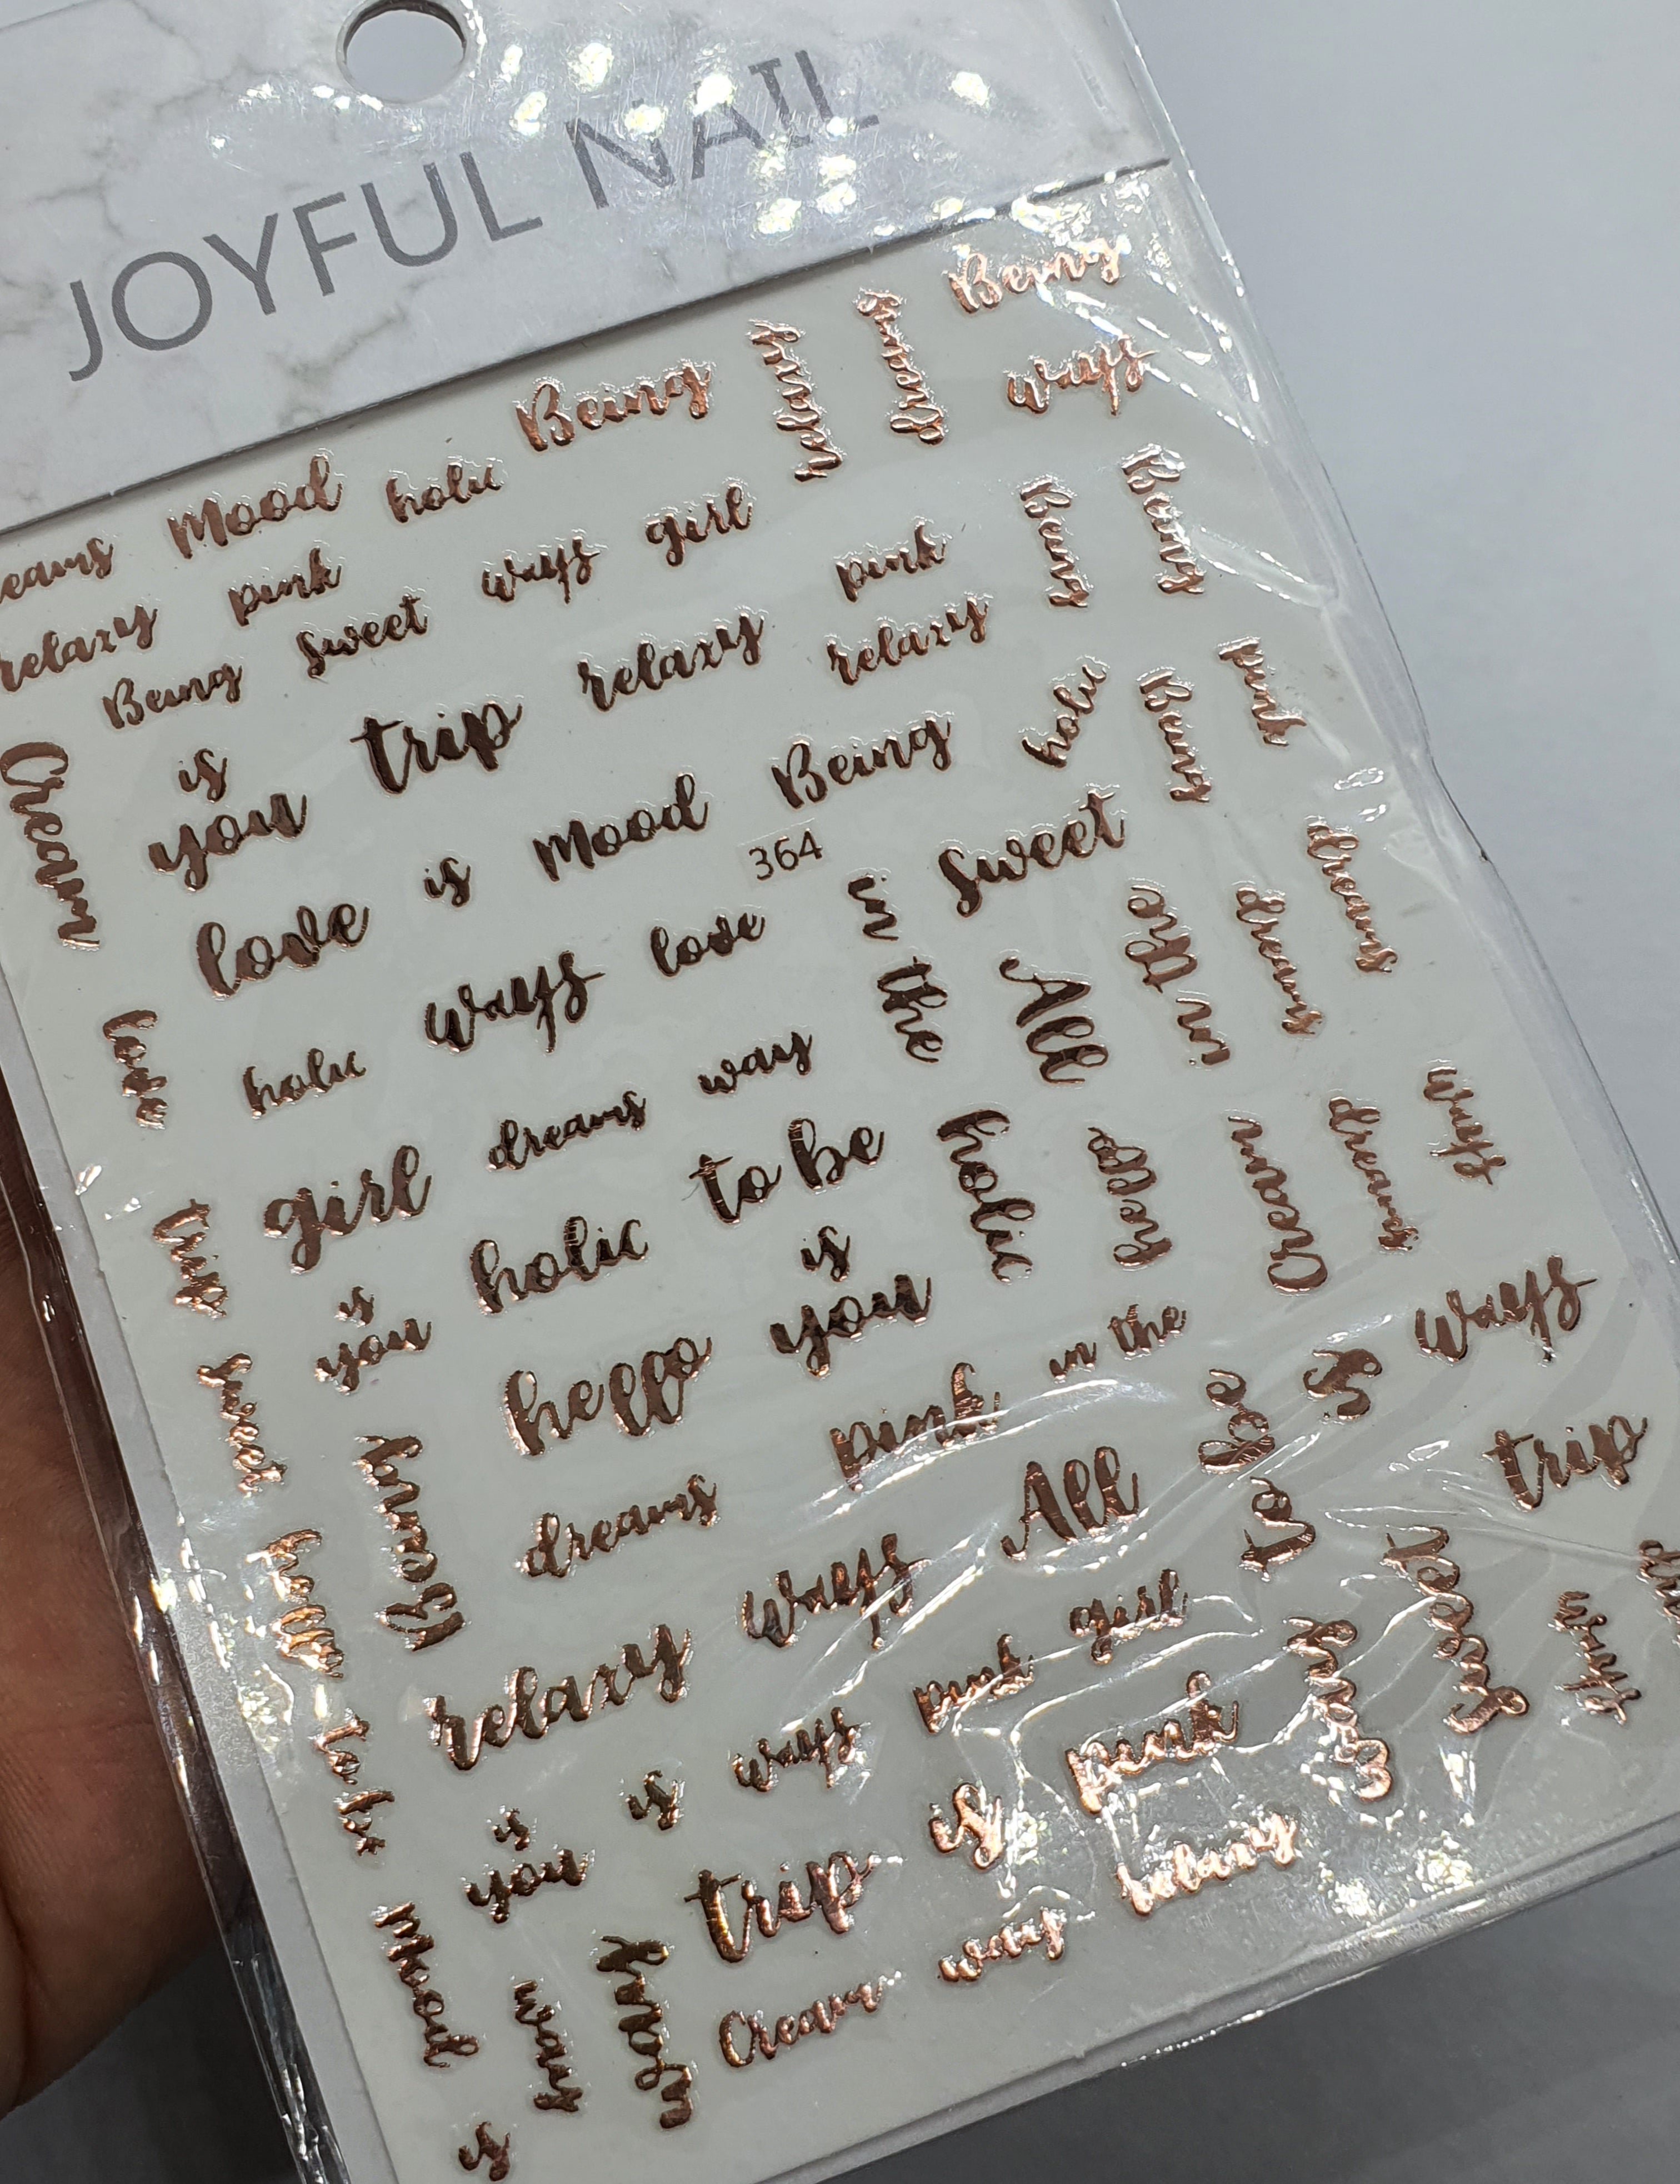 JOYFUL NAIL
Being
Being
ways
eams Mood holic
relaxy pink Sweet ways girl
Being
pink
Being
Being
is
you
trip relaxy relaxy
holic
Being
pink
Cream
love is Mood Being
364
Sweet
in the
All
in the
dreams
dreams
love
holic ways love
girl dreams way
to be
holic
hello
Cream
dreams
ways
trip
is
you
holic
is
you
Sweet
hello
pink in the
to be
is
ways
Being
dreams
ways
All
trip
hello
relaxy
pink
girl
Sweet
ways
to be
is
you
is
ways
is
pink
Mood
way
trip
way
relaxy
Cream
is